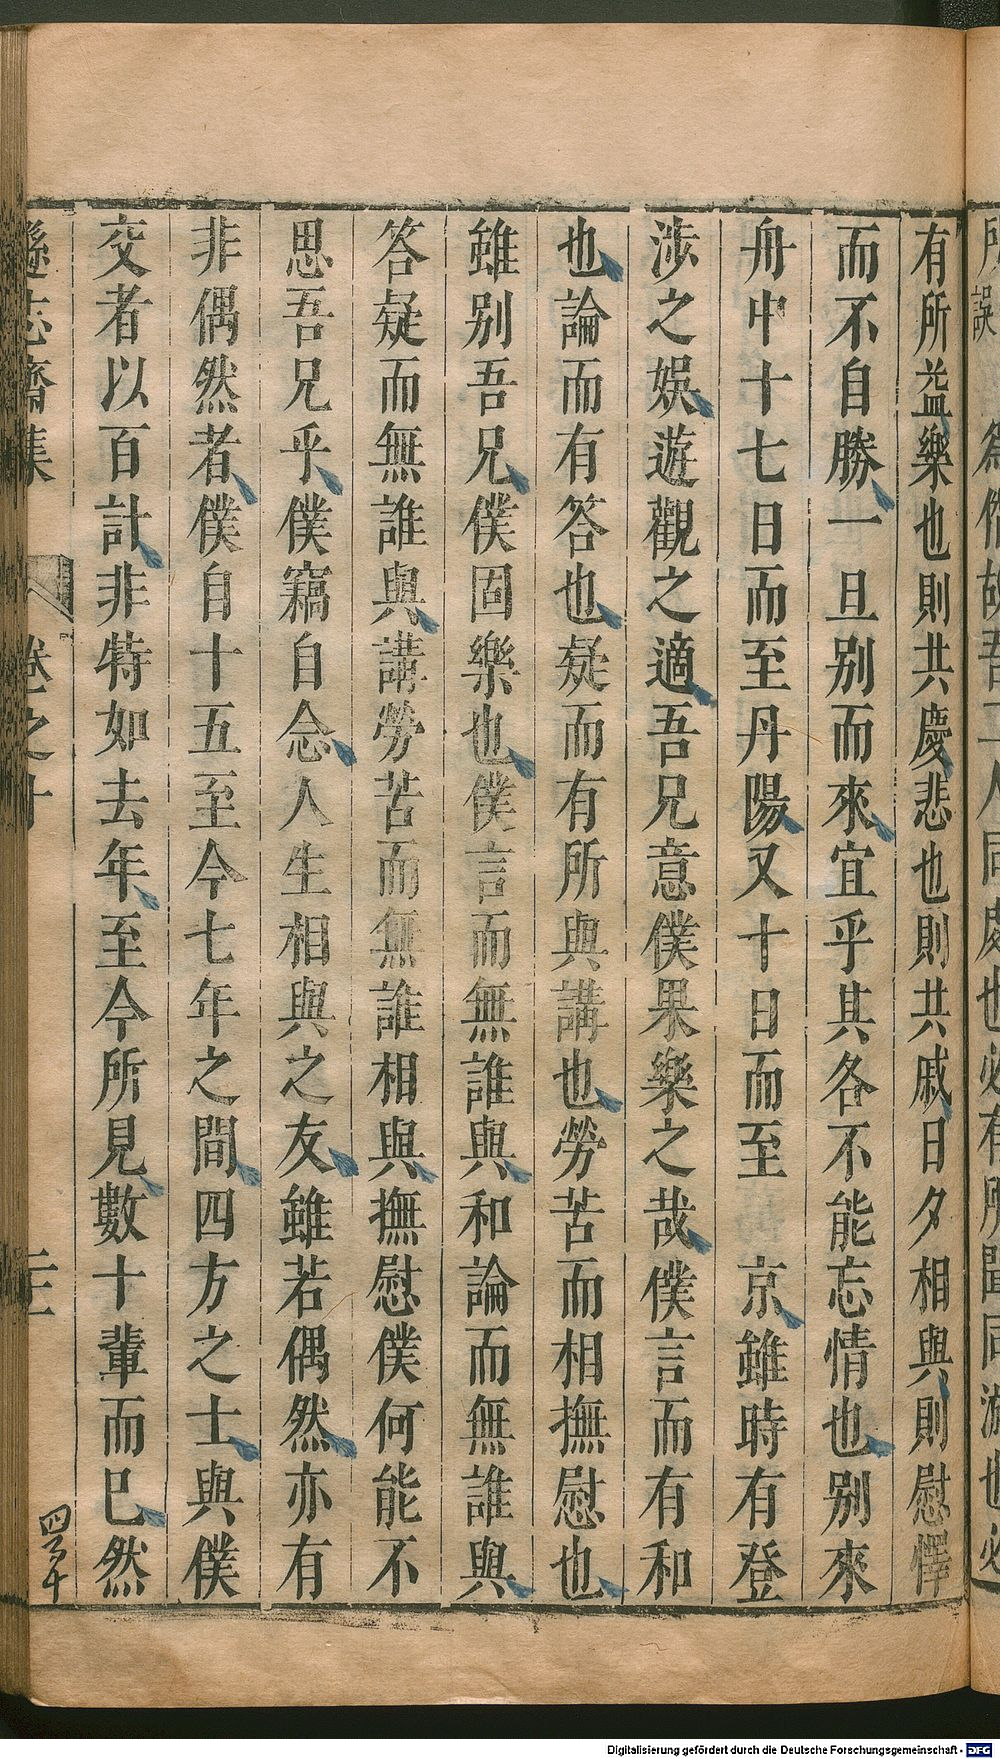 有所益樂也則共慶悲也則共戚日夕相與則慰懌
而不自勝一旦別而來宜乎其各不能忘情也別來
舟中十七日而至丹陽又十日而至 京雖時有登
涉之娛遊觀之適吾兄意僕果樂之哉僕言而有和
也論而有答也疑而有所與講也勞苦而相撫慰也
雖別吾兄僕固樂也僕言而無誰與和論而無誰與
答疑而無誰與講勞苦而無誰相與撫慰僕何能不
思吾兄乎僕竊自念人生相與之友雖若偶然亦有
非偶然者僕自十五至今七年之間四方之士與僕
交者以百計非特如去年至今所見數十輩而已然
遜志齋集 卷之十 二二
Digitalisierung gefördert durch die Deutsche Forschungsgemeinschaft - DFG